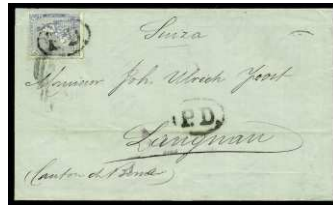 P.D.
Suiza
Monsieur Joh. Ulrich Jost
P.D.
Langnau
(Canton de Berne)